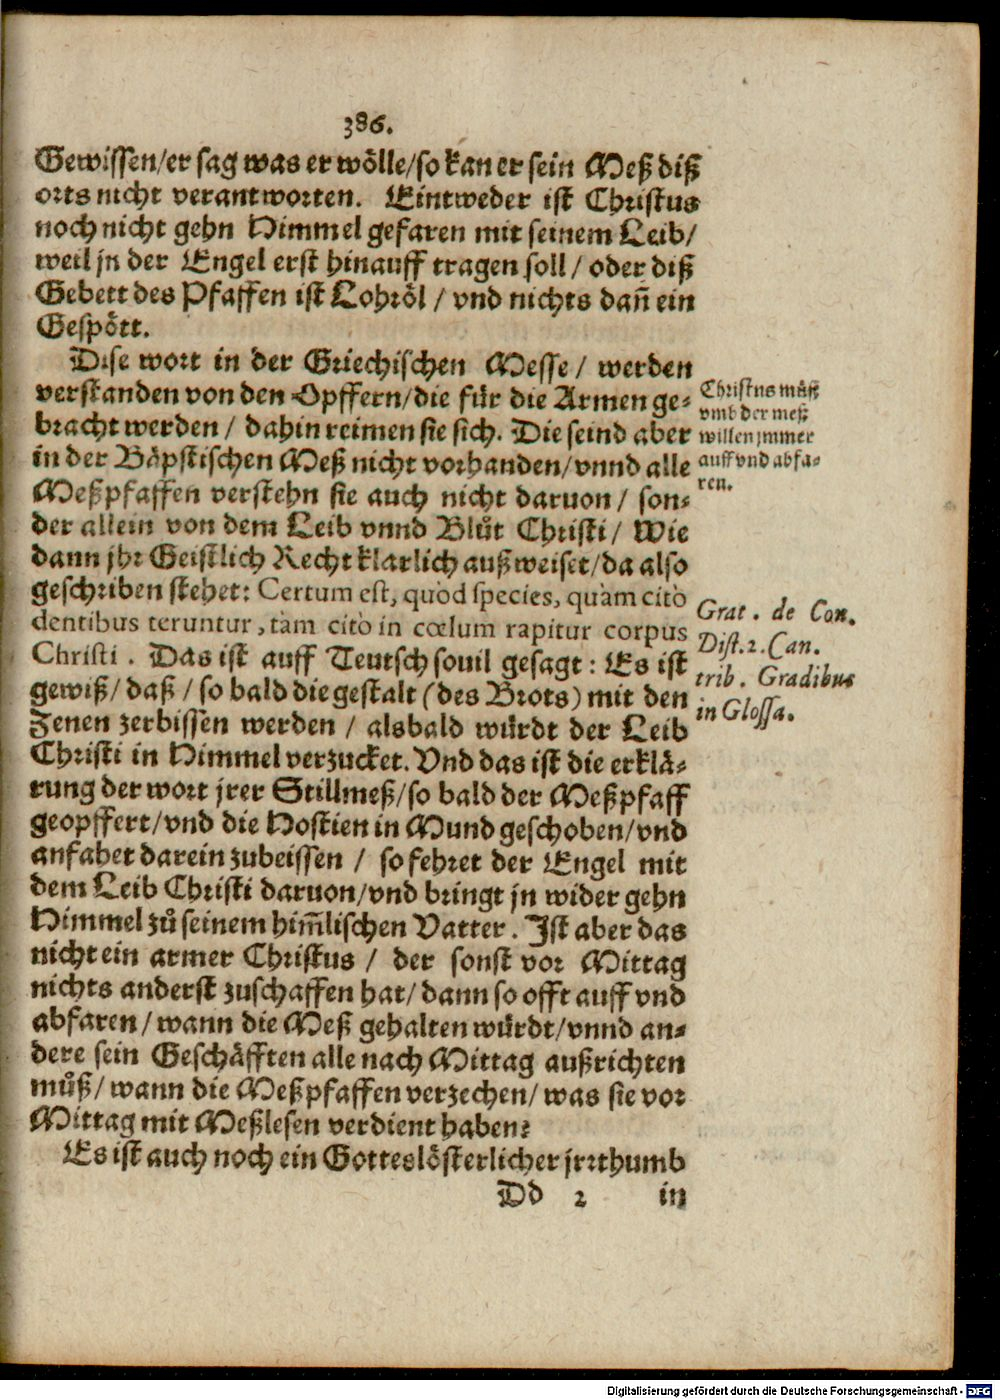 386.
Gewissen/er sag was er wölle/so kan er sein Meß diß
orts nicht verantworten. Eintweder ist Christus
noch nicht gehn Himmel gefaren mit seinem Leib/
weil jn der Engel erst hinauff tragen soll / oder diß
Gebett des Pfaffen ist Lohröl / vnd nichts dañ ein
Gespött.
Dise wort in der Griechischen Messe / werden
verstanden von den Opffern/die für die Armen ge-
bracht werden / dahin reimen sie sich. Die seind aber
in der Bäpstischen Meß nicht vorhanden/vnnd alle
Meßpfaffen verstehn sie auch nicht daruon / son-
der allein von dem Leib vnnd Blůt Christi / Wie
dann jhr Geistlich Recht klarlich außweiset/da also
geschriben stehet: Certum est, quòd species, quàm citò
dentibus teruntur, tàm citò in cœlum rapitur corpus
Christi. Das ist auff Teutsch souil gesagt: Es ist
gewiß/ daß / so bald die gestalt (des Brots) mit den
Zenen zerbissen werden / alsbald würdt der Leib
Christi in Himmel verzucket. Vnd das ist die erklä-
rung der wort jrer Stillmeß/so bald der Meßpfaff
geopffert/vnd die Hostien in Mund geschoben/vnd
anfahet darein zubeissen / so fehret der Engel mit
dem Leib Christi daruon/vnd bringt jn wider gehn
Himmel zů seinem him̃lischen Vatter. Ist aber das
nicht ein armer Christus / der sonst vor Mittag
nichts anderst zuschaffen hat/ dann so offt auff vnd
abfaren / wann die Meß gehalten würdt/vnnd an-
dere sein Geschäfften alle nach Mittag außrichten
můß/ wann die Meßpfaffen verzechen/ was sie vor
Mittag mit Meßlesen verdient haben?
Es ist auch noch ein Gotteslösterlicher jrrthumb
Dd 2 in
Christus můß
vmb der meß
willen jmmer
auff vnd abfa-
ren.
Grat. de Con.
Dist. 2. Can.
trib. Gradibus
in Glossa.
Digitalisierung gefördert durch die Deutsche Forschungsgemeinschaft - DFG